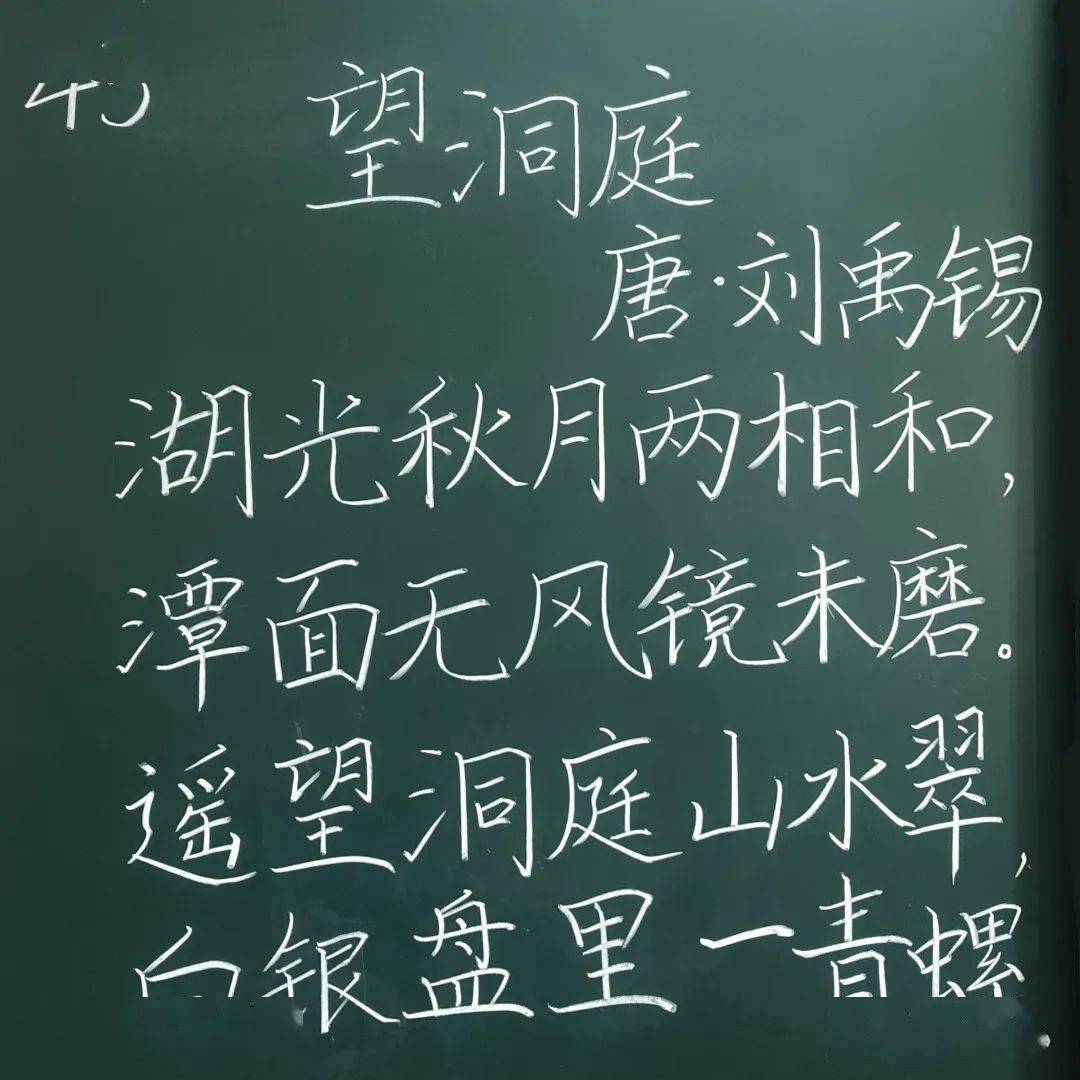 望洞庭
唐·刘禹锡
湖光秋月两相和,
潭面无风镜未磨。
遥望洞庭山水翠,
白银盘里一青螺